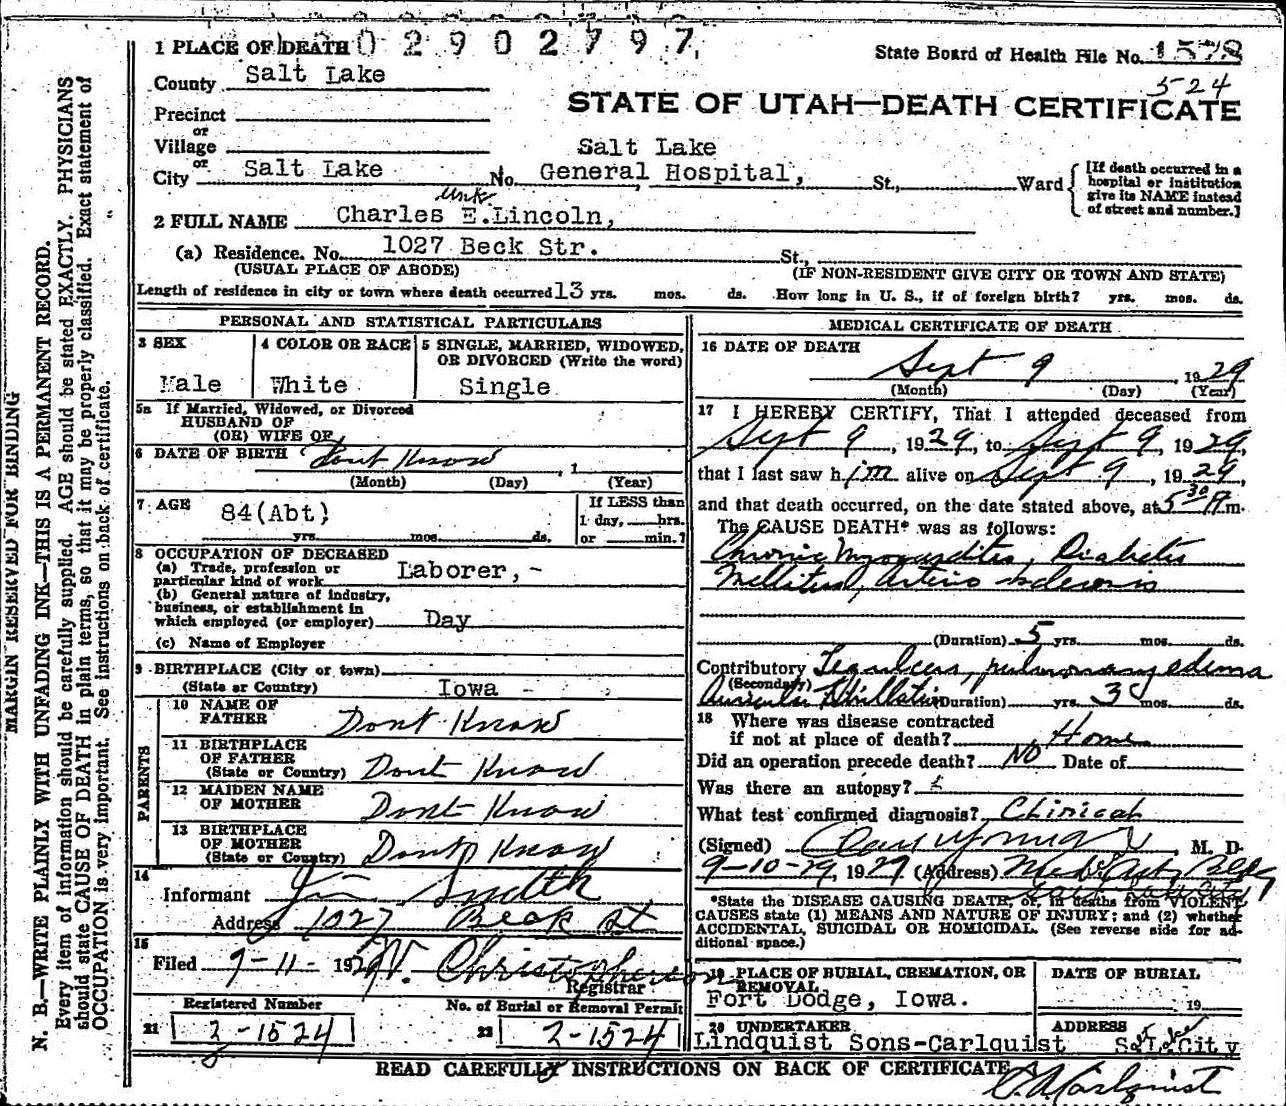 02902797
1 PLACE OF DEATH
State Board of Health File No. 1578
County Salt Lake
524
STATE OF UTAH—DEATH CERTIFICATE
Precinct
or
Village
or
City Salt Lake No. Salt Lake General Hospital, St., Ward
[If death occurred in a hospital or institution give its NAME instead of street and number.]
Unk
2 FULL NAME Charles E.Lincoln,
(a) Residence. No. 1027 Beck Str. St.,
(USUAL PLACE OF ABODE) (IF NON-RESIDENT GIVE CITY OR TOWN AND STATE)
Length of residence in city or town where death occurred 13 yrs. mos. ds. How long in U. S., if of foreign birth? yrs. mos. ds.
PERSONAL AND STATISTICAL PARTICULARS
3 SEX
Male
4 COLOR OR RACE
White
5 SINGLE, MARRIED, WIDOWED,
OR DIVORCED (Write the word)
Single
5a If Married, Widowed, or Divorced
HUSBAND OF
(OR) WIFE OF
6 DATE OF BIRTH Dont Know , 1
(Month) (Day) (Year)
7 AGE
84(Abt)
yrs. mos. ds.
If LESS than
1 day, hrs.
or min.?
8 OCCUPATION OF DECEASED
(a) Trade, profession or
particular kind of work Laborer,-
(b) General nature of industry,
business, or establishment in
which employed (or employer) Day
(c) Name of Employer
9 BIRTHPLACE (City or town)
(State or Country) Iowa -
PARENTS
10 NAME OF
FATHER Dont Know
11 BIRTHPLACE
OF FATHER
(State or Country) Dont Know
12 MAIDEN NAME
OF MOTHER Dont Know
13 BIRTHPLACE
OF MOTHER
(State or Country) Dont Know
14
Informant Jim Smith
Address 1027 Beck St
15
Filed 9-11- 1929 Christopherson
Registrar
Registered Number
21 2-1524
No. of Burial or Removal Permit
22 2-1524
MEDICAL CERTIFICATE OF DEATH
16 DATE OF DEATH
Sept 9 , 1929
(Month) (Day) (Year)
17 I HEREBY CERTIFY, That I attended deceased from
Sept 9, 1929, to Sept 9, 1929,
that I last saw him alive on Sept 9, 1929,
and that death occurred, on the date stated above, at 5 30 A m.
The CAUSE DEATH* was as follows:
Chronic Myocarditis, Diabetis
Mellitus, Arterio sclerosis
(Duration) 5 yrs. mos. ds.
Contributory Leg ulcers, pulmonary edema
(Secondary)
Auricular Fibrillation (Duration) yrs. 3 mos. ds.
18 Where was disease contracted
if not at place of death? Home
Did an operation precede death? NO Date of
Was there an autopsy?
What test confirmed diagnosis? Clinical
(Signed) Young M. D.
9-10-29, 1929 (Address) Med Arts Bldg
Salt Lake City
*State the DISEASE CAUSING DEATH, or, in deaths from VIOLENT
CAUSES state (1) MEANS AND NATURE OF INJURY; and (2) whether
ACCIDENTAL, SUICIDAL OR HOMICIDAL. (See reverse side for ad-
ditional space.)
19 PLACE OF BURIAL, CREMATION, OR
REMOVAL
Fort Dodge, Iowa.
DATE OF BURIAL
19
20 UNDERTAKER
Lindquist Sons-Carlquist
ADDRESS
Salt Lake City
READ CAREFULLY INSTRUCTIONS ON BACK OF CERTIFICATE
C. A. Carlquist
MARGIN RESERVED FOR BINDING
N. B.—WRITE PLAINLY WITH UNFADING INK—THIS IS A PERMANENT RECORD.
Every item of information should be carefully supplied. AGE should be stated EXACTLY. PHYSICIANS
should state CAUSE OF DEATH in plain terms, so that it may be properly classified. Exact statement of
OCCUPATION is very important. See instructions on back of certificate.